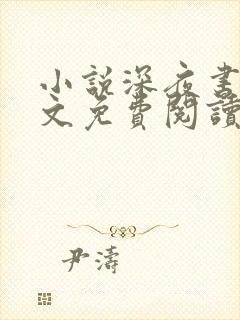 小說深夜書
文免費閱讀
尹濤